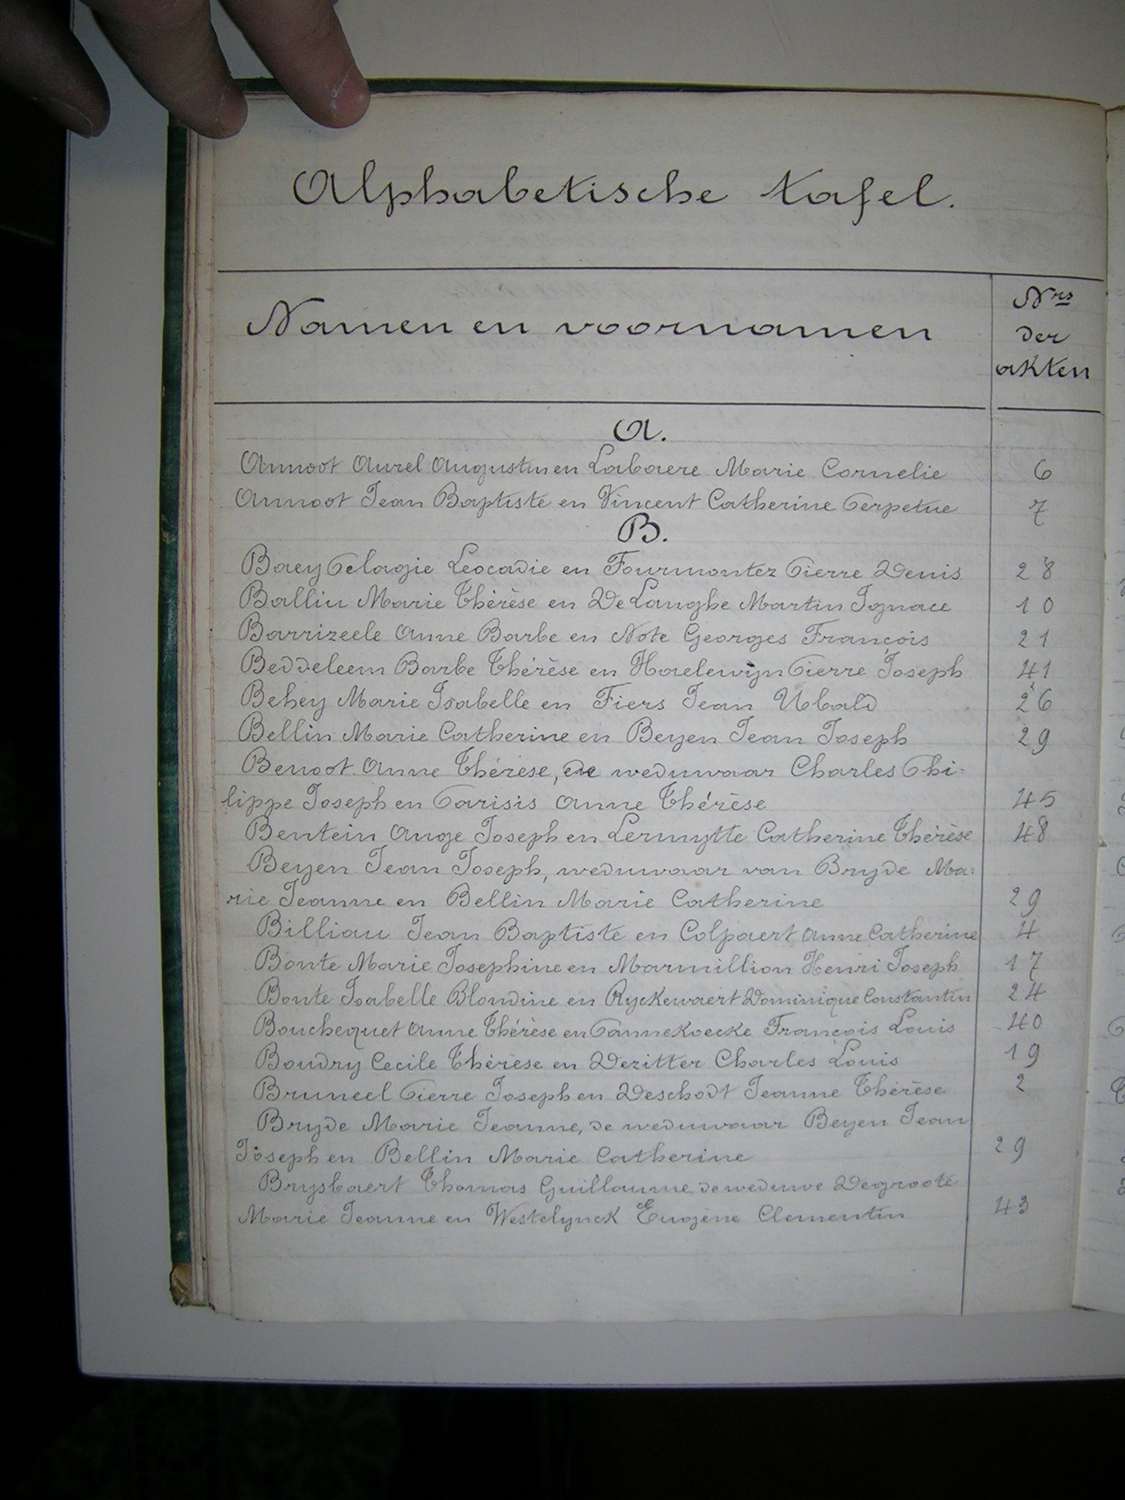 Alphabetische tafel.
Namen en voornamen
Nrs
der
akten
A.
Annoot Aurel Augustin en Labaere Marie Cornelie 6
Annoot Jean Baptiste en Vincent Catherine Perpetue 7
B.
Baey Pelagie Leocadie en Fourmontez Pierre Denis 28
Ballin Marie Thérèse en De Langhe Martin Ignace 10
Barrizeele Anne Barbe en Note Georges François 21
Beddeleem Barbe Thérèse en Haelewijn Pierre Joseph 41
Behey Marie Isabelle en Fiers Jean Ubald 26
Bellin Marie Catherine en Beyen Jean Joseph 29
Benoot Anne Thérèse, de weduwaar Charles Phi-
lippe Joseph en Parisis Anne Thérèse 45
Bentein Ange Joseph en Lermytte Catherine Thérèse 48
Beyen Jean Joseph, weduwaar van Bryde Ma-
rie Jeanne en Bellin Marie Catherine 29
Billiau Jean Baptiste en Colpaert Anne Catherine 4
Bonte Marie Josephine en Marmillion Henri Joseph 17
Bonte Isabelle Blondine en Ryckewaert Dominique Constantin 24
Bouchequet Anne Thérèse en Pannekoecke François Louis 40
Boudry Cecile Thérèse en Dezitter Charles Louis 19
Bruneel Pierre Joseph en Deschodt Jeanne Thérèse 2
Bryde Marie Jeanne, de weduwaar Beyen Jean
Joseph en Bellin Marie Catherine 29
Brysbaert Thomas Guillaume de weduwe Degroote
Marie Jeanne en Westelynck Eugène Clementin 43